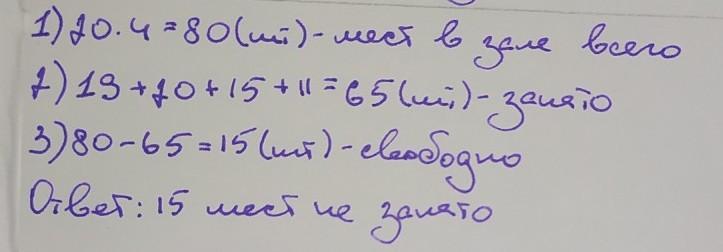 1) 20·4=80(шт)-мест в зале всего
2) 19+20+15+11=65(шт)-занято
3) 80-65=15(шт)-свободно
Ответ: 15 мест не занято